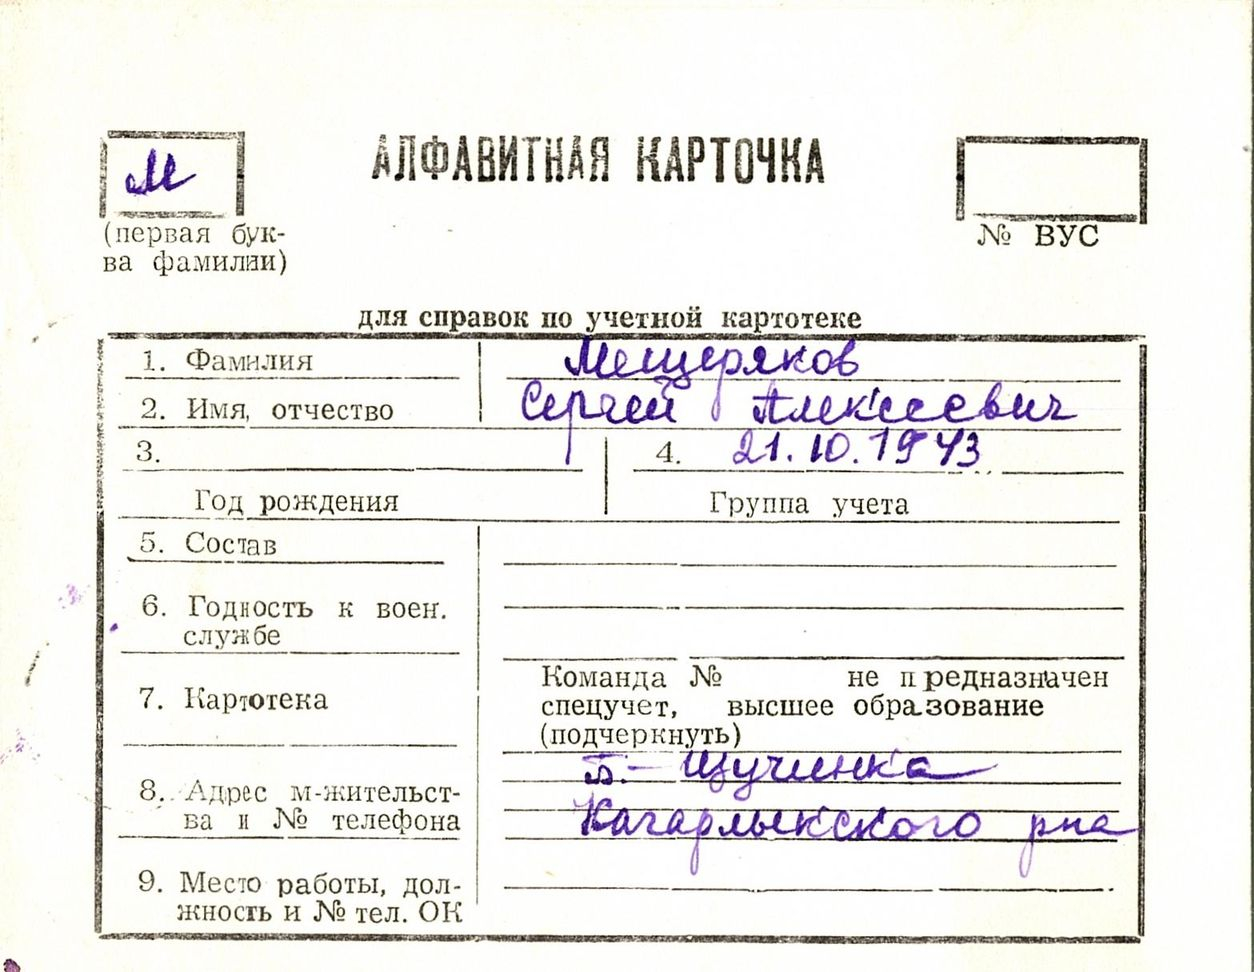 М
АЛФАВИТНАЯ КАРТОЧКА
(первая бук-
ва фамилии)
№ ВУС
для справок по учетной картотеке
1. Фамилия Мещеряков
2. Имя, отчество Сергей Алексеевич
3. 4. 21.10.1943
Год рождения Группа учета
5. Состав
6. Годность к воен.
службе
7. Картотека
Команда № не предназначен
спецучет, высшее образование
(подчеркнуть)
8. Адрес м-жительст-
ва и № телефона
Щучинка
Кагарлыкского рна
9. Место работы, дол-
жность и № тел. ОК